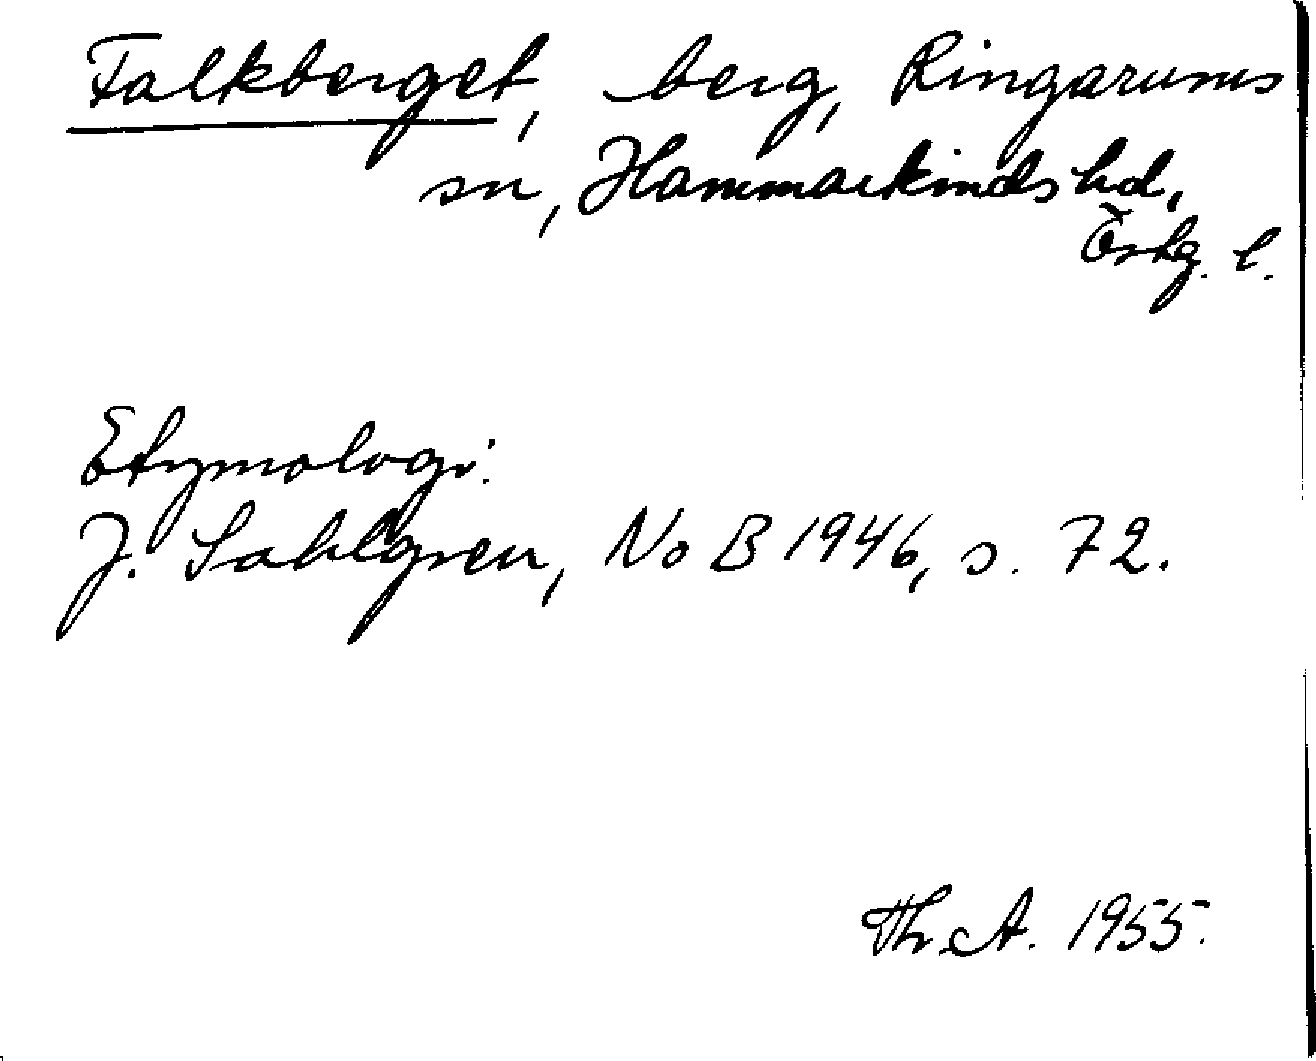 Falkberget, berg, Ringarums
sn, Hammarkinds hd,
Östg. l.
Etymologi:
J. Sahlgren, NoB 1946, s. 72.
Th. A. 1955.